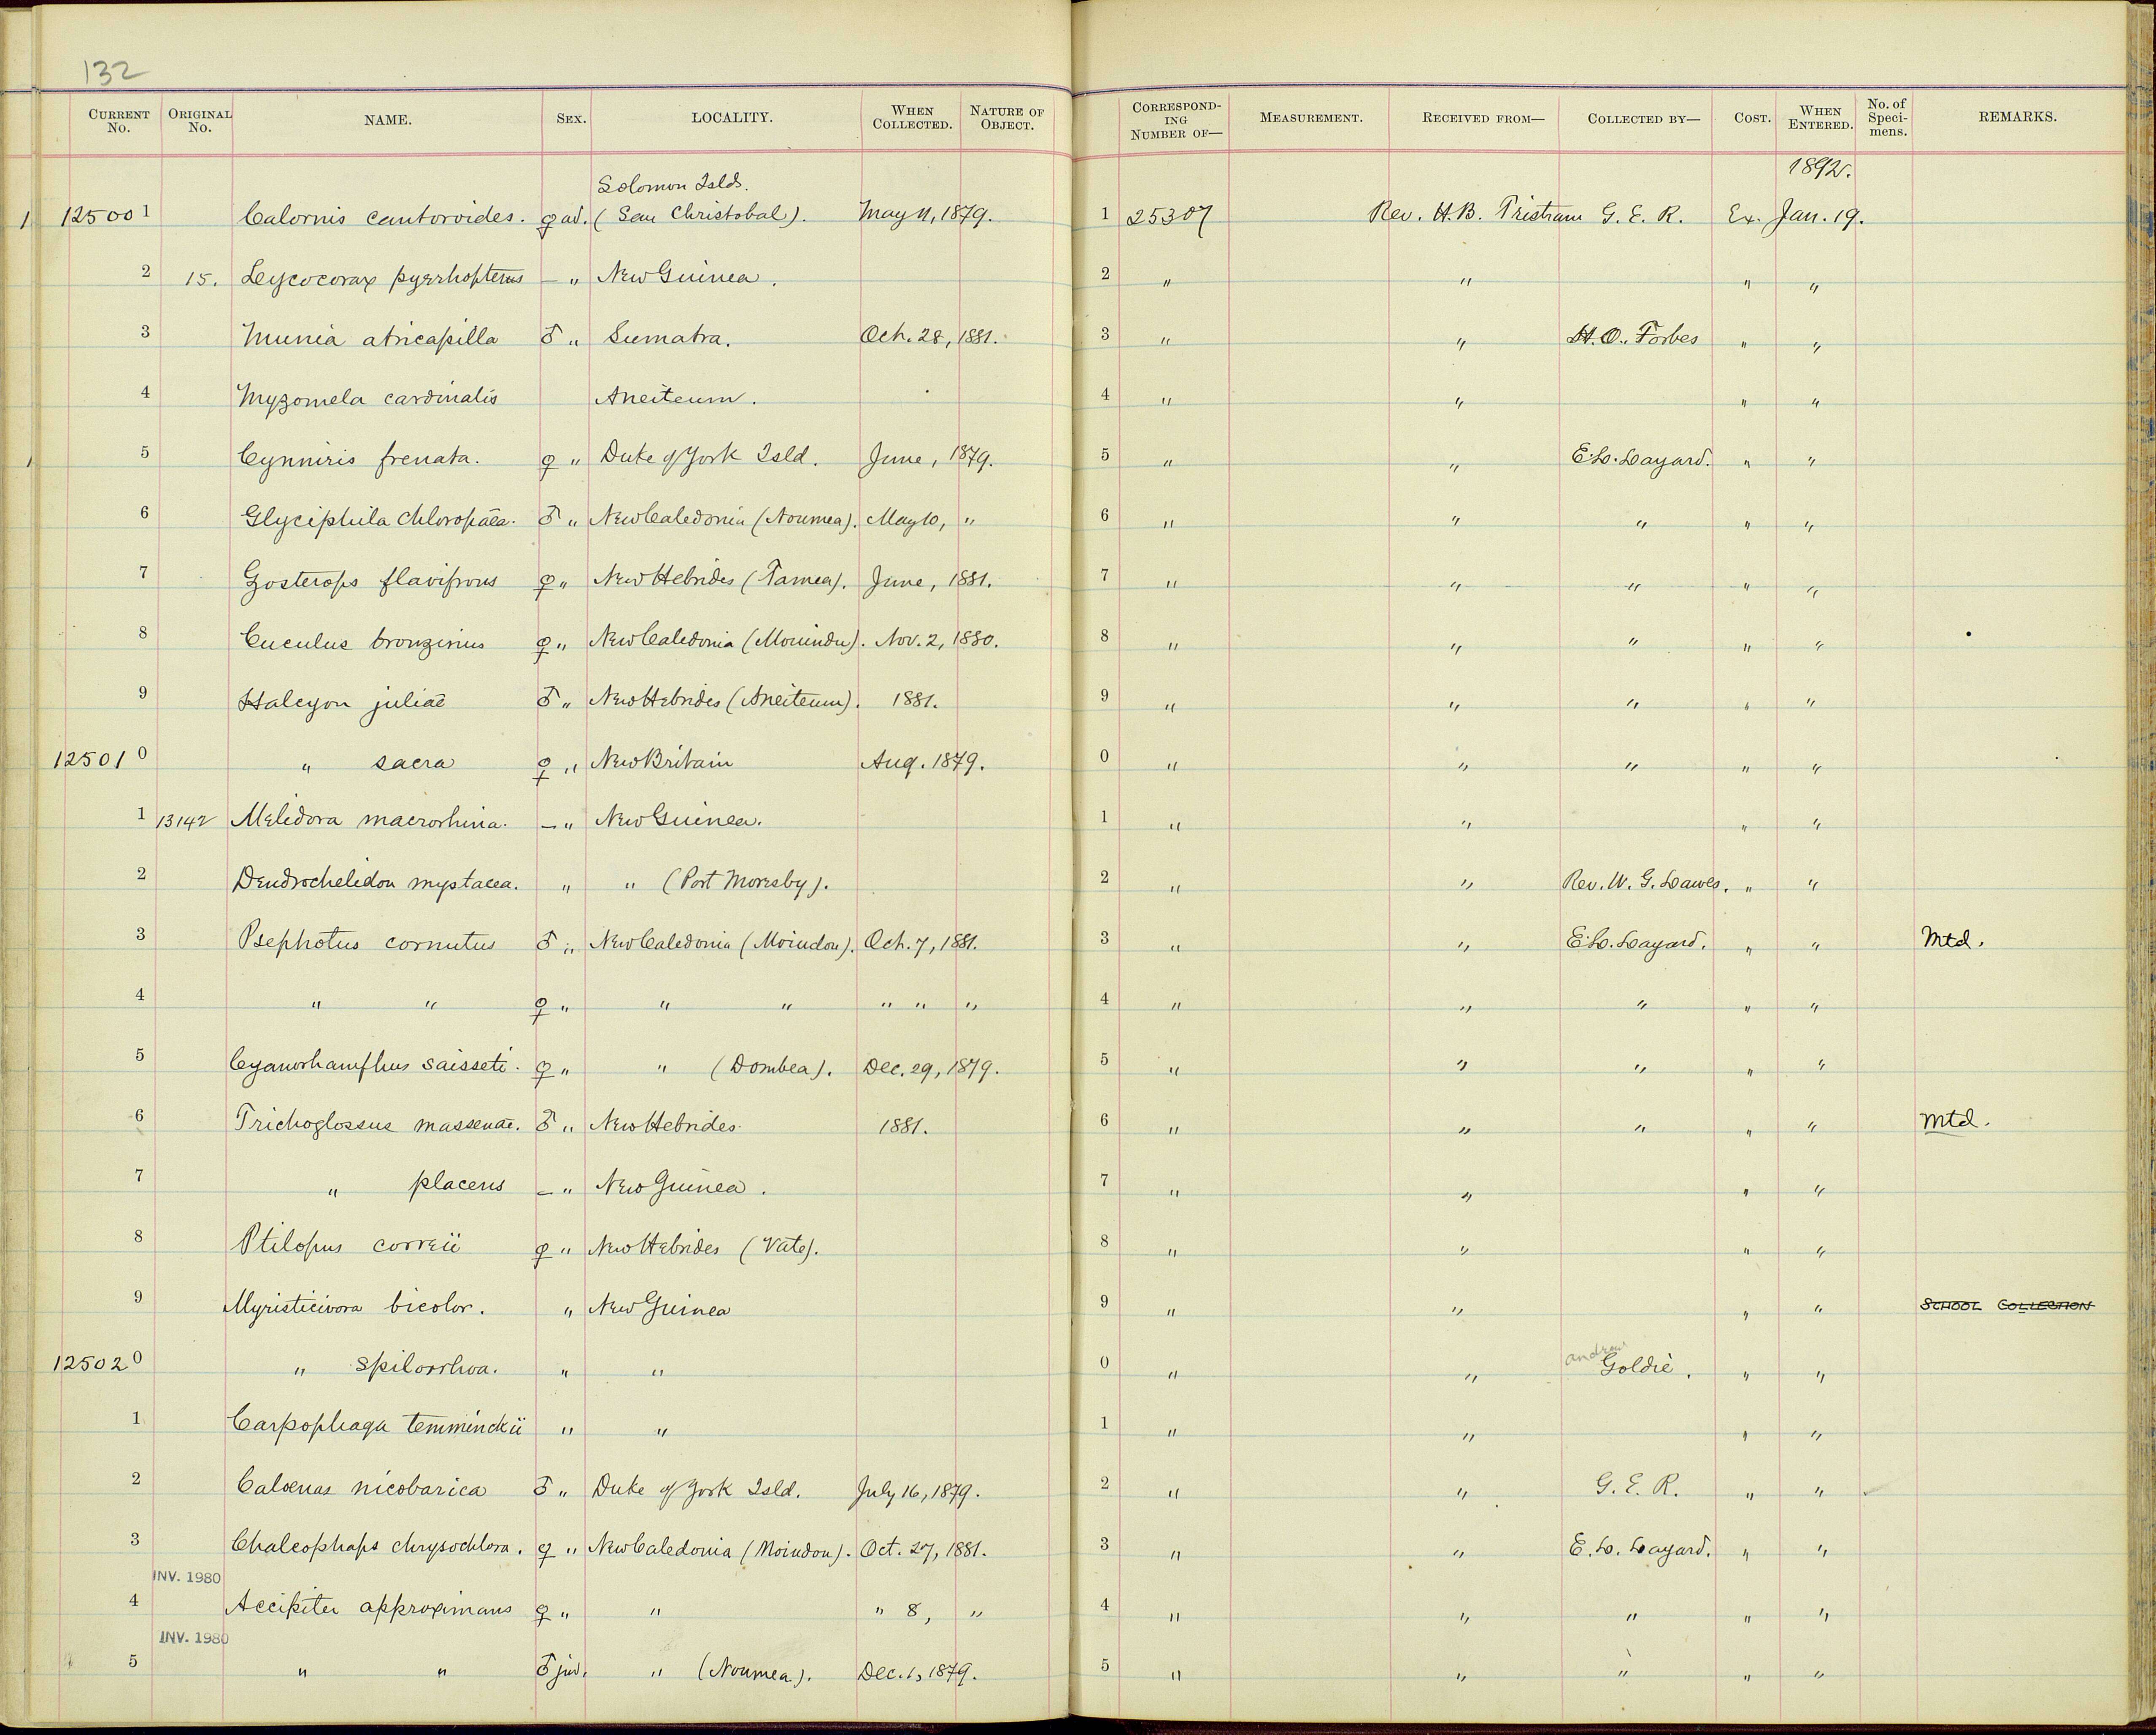 132
CURRENT No. ORIGINAL No. NAME. SEX. LOCALITY. WHEN COLLECTED. NATURE OF OBJECT. CORRESPONDING NUMBER OF— MEASUREMENT. RECEIVED FROM— COLLECTED BY— COST. WHEN ENTERED. No. of Specimens. REMARKS.
Solomon Islds. 1892.
1 12500 1 Calornis cantoroides. ♀ ad. (San Christobal). May 11, 1879. 1 25307 Rev. H.B. Tristram G. E. R. Ex. Jan. 19.
2 15. Lycocorax pyrrhopterus — " New Guinea. 2 " " " "
3 Munia atricapilla ♂ " Sumatra. Oct. 28, 1881. 3 " " H. O. Forbes " "
4 Myzomela cardinalis Aneiteum. 4 " " " "
5 Cynniris frenata. ♀ " Duke of York Isld. June, 1879. 5 " " E. L. Layard. " "
6 Glyciphila chloropaëa. ♂ " New Caledonia (Noumea). May 10, " 6 " " " " "
7 Zosterops flavifrons ♀ " New Hebrides (Tamea). June, 1881. 7 " " " " "
8 Cuculus bronzinus ♀ " New Caledonia (Mouindu). Nov. 2, 1880. 8 " " " " "
9 Halcyon juliae ♂ " New Hebrides (Aneiteum). 1881. 9 " " " " "
12501 0 " sacra ♀ " New Britain Aug. 1879. 0 " " " " "
1 13142 Melidora macrorhina. — " New Guinea. 1 " " " "
2 Dendrochelidon mystacea. " " (Port Moresby). 2 " " Rev. W. G. Lawes. " "
3 Psephotus cornutus ♂ " New Caledonia (Moindou). Oct. 7, 1881. 3 " " E. L. Layard. " " Mtd.
4 " " ♀ " " " " " " 4 " " " " "
5 Cyanorhamphus saisseti. ♀ " " (Dombea). Dec. 29, 1879. 5 " " " " "
6 Trichoglossus massenae. ♂ " New Hebrides. 1881. 6 " " " " " Mtd.
7 " placens — " New Guinea. 7 " " " "
8 Ptilopus correii ♀ " New Hebrides (Vate). 8 " " " "
9 Myristicivora bicolor. " New Guinea 9 " " " " SCHOOL COLLECTION
12502 0 " spilorrhoa. " " 0 " " andrew Goldie. " "
1 Carpophaga temminckii " " 1 " " " "
2 Calœnas nicobarica ♂ " Duke of York Isld. July 16, 1879. 2 " " G. E. R. " "
3 Chalcophaps chrysochlora. ♀ " New Caledonia (Moindou). Oct. 27, 1881. 3 " " E. L. Layard. " "
INV. 1980
4 Accipiter approximans ♀ " " " 8, " 4 " " " " "
INV. 1980
5 " " ♂ juv. " (Noumea). Dec. 1, 1879. 5 " " " " "